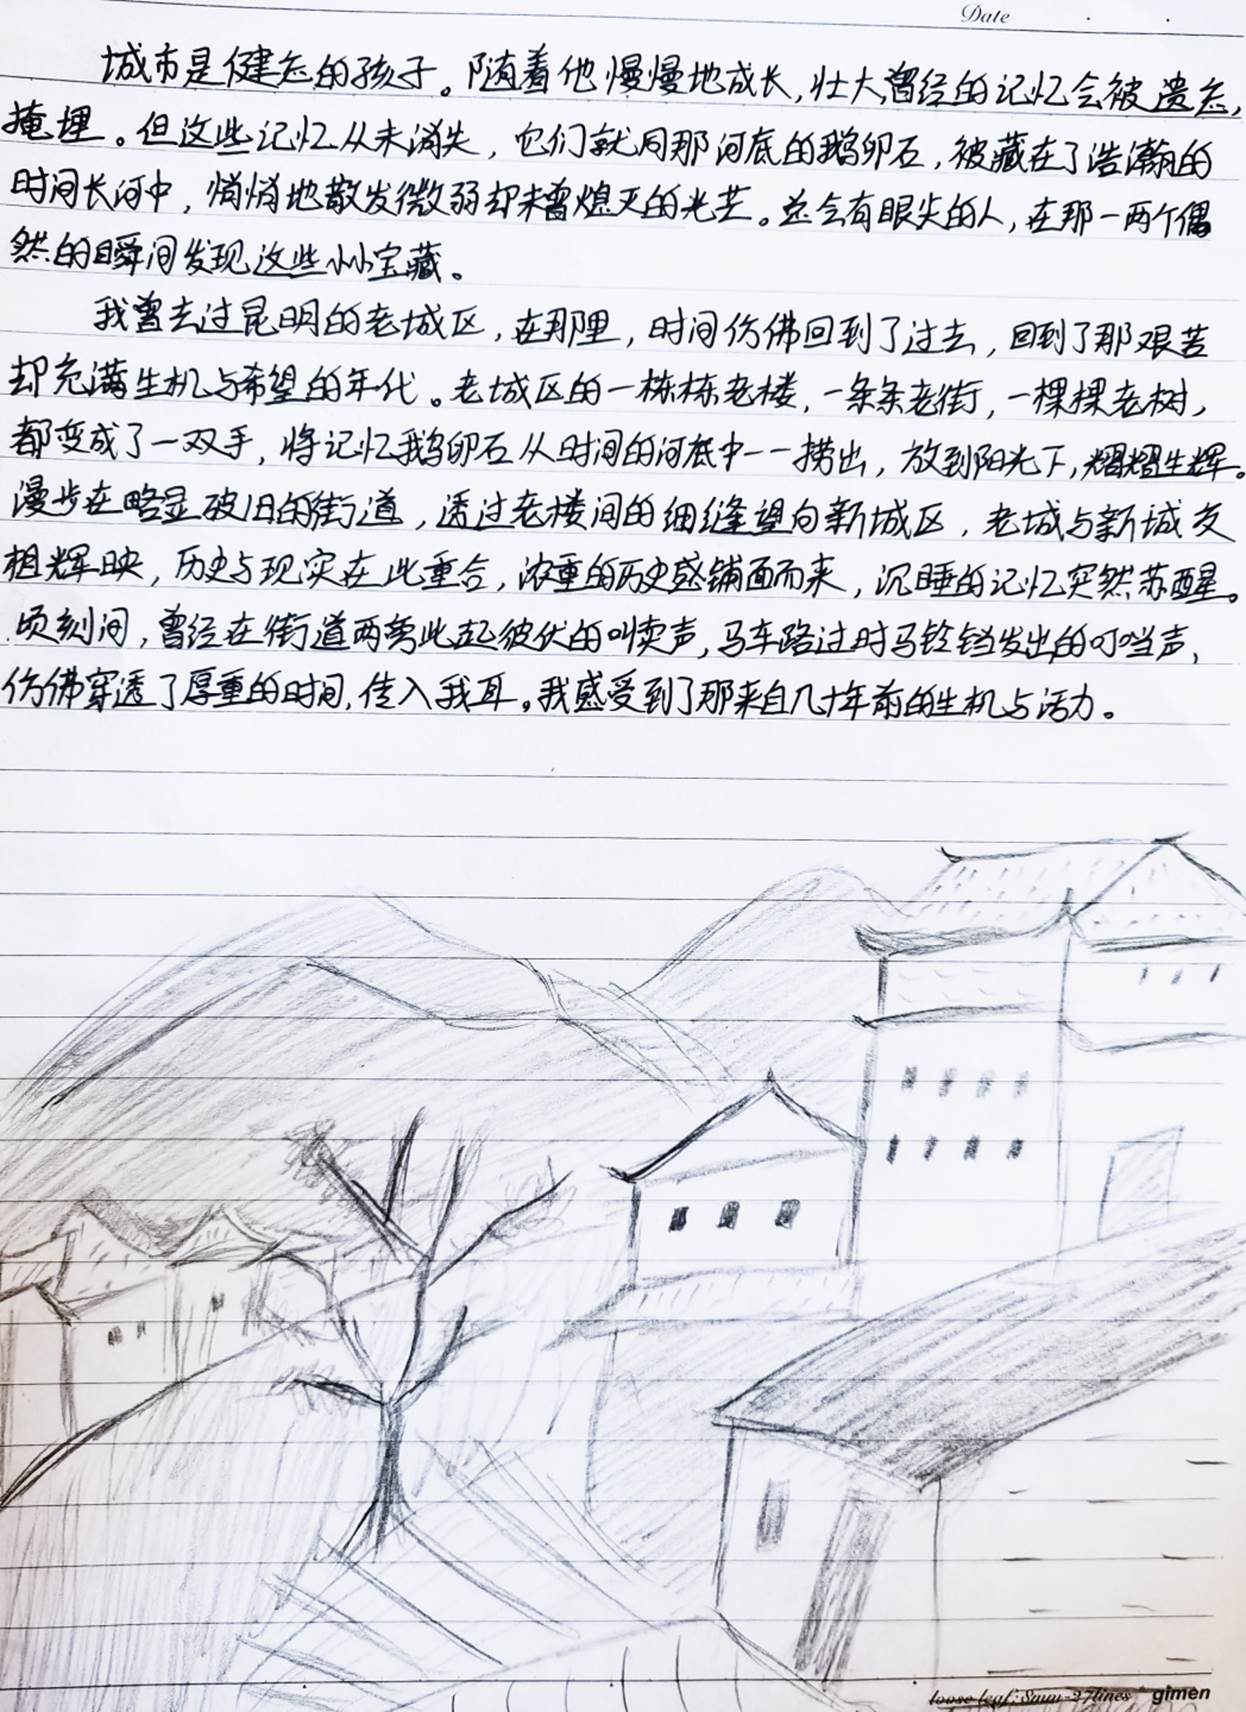 Date
城市是健忘的孩子。随着他慢慢地成长,壮大,曾经的记忆会被遗忘,
掩埋。但这些记忆从未消失，它们就同那河底的鹅卵石，被藏在了浩瀚的
时间长河中，悄悄地散发微弱却未曾熄灭的光芒。总会有眼尖的人，在那一两个偶
然的瞬间发现这些小小宝藏。
我曾去过昆明的老城区，在那里，时间仿佛回到了过去，回到了那艰苦
却充满生机与希望的年代。老城区的一栋栋老楼，一条条老街，一棵棵老树，
都变成了一双手，将记忆鹅卵石从时间的河底中一一捞出，放到阳光下，熠熠生辉。
漫步在略显破旧的街道，透过老楼间的细缝望向新城区，老城与新城交
相辉映，历史与现实在此重合，浓重的历史感铺面而来，沉睡的记忆突然苏醒。
顷刻间，曾经在街道两旁此起彼伏的叫卖声，马车路过时马铃铛发出的叮当声，
仿佛穿透了厚重的时间，传入我耳。我感受到了那来自几十年前的生机与活力。
loose leaf:8mm-27lines gimen